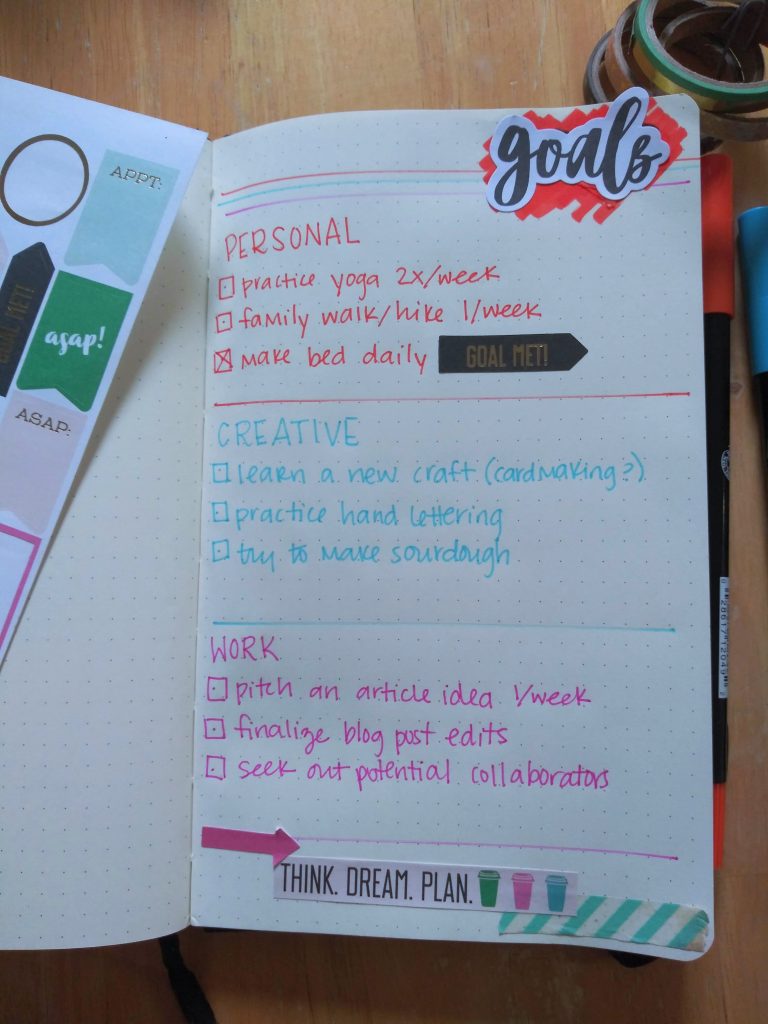 APPT:
GOAL MET!
asap!
ASAP:
goals
PERSONAL
practice yoga 2x/week
family walk/hike 1/week
make bed daily GOAL MET!
CREATIVE
learn a new craft (cardmaking?)
practice hand lettering
try to make sourdough
WORK
pitch an article idea 1/week
finalize blog post edits
seek out potential collaborators
THINK. DREAM. PLAN.